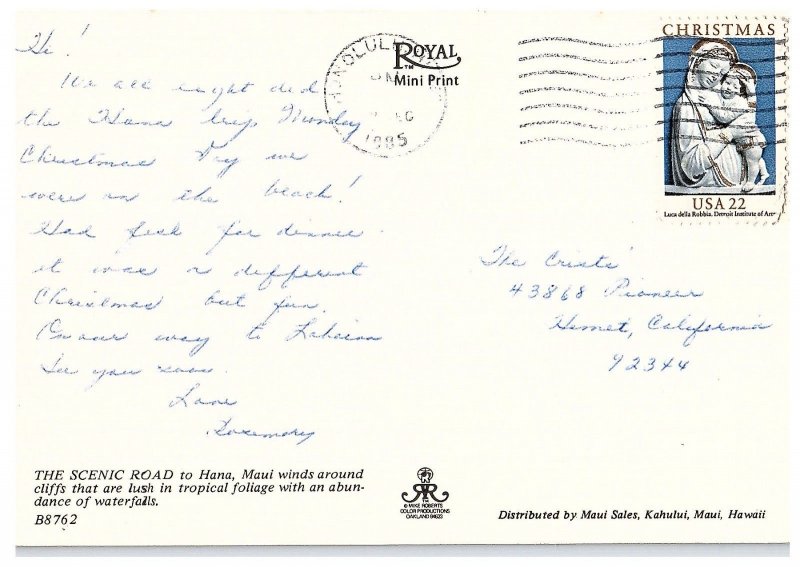 Hi!
We all eight did
the Hana trip Monday
Christmas Day we
were on the beach!
Had fish for dinner
it was a different
Christmas but fun.
On our way to Lahaina
See you soon.
Love
Rosemary
ROYAL
TM
Mini Print
HONOLULU
1985
CHRISTMAS
USA 22
Luca della Robbia, Detroit Institute of Art
The Crists'
43868 Pioneer
Hemet, California
92344
THE SCENIC ROAD to Hana, Maui winds around
cliffs that are lush in tropical foliage with an abun-
dance of waterfalls.
B8762
TM
© MIKE ROBERTS
COLOR PRODUCTIONS
OAKLAND 94623
Distributed by Maui Sales, Kahului, Maui, Hawaii